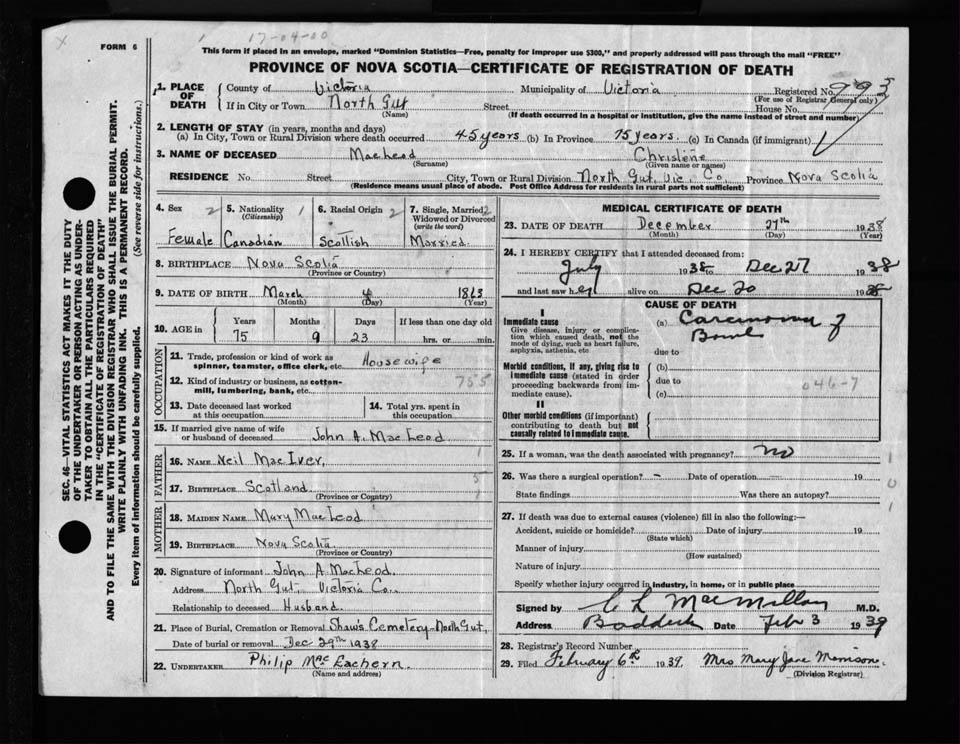 17-04-00
FORM 6
This form if placed in an envelope, marked "Dominion Statistics—Free, penalty for improper use $300," and properly addressed will pass through the mail "FREE"
PROVINCE OF NOVA SCOTIA—CERTIFICATE OF REGISTRATION OF DEATH
SEC. 46—VITAL STATISTICS ACT MAKES IT THE DUTY
OF THE UNDERTAKER OR PERSON ACTING AS UNDER-
TAKER TO OBTAIN ALL THE PARTICULARS REQUIRED
IN THE "CERTIFICATE OF REGISTRATION OF DEATH"
AND TO FILE THE SAME WITH THE DIVISION REGISTRAR WHO SHALL ISSUE THE BURIAL PERMIT.
WRITE PLAINLY WITH UNFADING INK. THIS IS A PERMANENT RECORD.
Every item of information should be carefully supplied. (See reverse side for instructions.)
1. PLACE OF DEATH County of Victoria Municipality of Victoria Registered No. 993
(For use of Registrar General only)
If in City or Town North Gut Street House No.
(Name) (If death occurred in a hospital or institution, give the name instead of street and number)
2. LENGTH OF STAY (in years, months and days)
(a) In City, Town or Rural Division where death occurred 45 years (b) In Province 75 years. (c) In Canada (if immigrant)
3. NAME OF DECEASED MacLeod Christene
(Surname) (Given name or names)
RESIDENCE No. Street City, Town or Rural Division North Gut, Vic. Co. Province Nova Scotia
(Residence means usual place of abode. Post Office Address for residents in rural parts not sufficient)
4. Sex 2 5. Nationality 1 6. Racial Origin 2 7. Single, Married 2
(Citizenship) Widowed or Divorced
(write the word)
Female Canadian Scottish Married
8. BIRTHPLACE Nova Scotia
(Province or Country)
9. DATE OF BIRTH March 4 1863
(Month) (Day) (Year)
10. AGE in Years Months Days If less than one day old
75 9 23 hrs. or min.
OCCUPATION
11. Trade, profession or kind of work as
spinner, teamster, office clerk, etc. Housewife
12. Kind of industry or business, as cotton-
mill, lumbering, bank, etc. 755
13. Date deceased last worked
at this occupation
14. Total yrs. spent in
this occupation
15. If married give name of wife
or husband of deceased John A. MacLeod
FATHER
16. NAME Neil MacIver,
17. BIRTHPLACE Scotland
(Province or Country)
MOTHER
18. MAIDEN NAME Mary MacLeod
19. BIRTHPLACE Nova Scotia
(Province or Country)
20. Signature of informant John A. MacLeod.
Address North Gut, Victoria Co.
Relationship to deceased Husband
21. Place of Burial, Cremation or Removal Shaw's Cemetery-North Gut,
Date of burial or removal Dec 29th 1938
22. UNDERTAKER Philip MacEachern.
(Name and address)
MEDICAL CERTIFICATE OF DEATH
23. DATE OF DEATH December 27th 1938
(Month) (Day) (Year)
24. I HEREBY CERTIFY that I attended deceased from:
July 1938 to Dec 27 1938
and last saw her alive on Dec 20 1938
CAUSE OF DEATH
I
Immediate cause
Give disease, injury or complica-
tion which caused death, not the
mode of dying, such as heart failure,
asphyxia, asthenia, etc
(a) Carcinoma of
Bowel
due to
Morbid conditions, if any, giving rise to
immediate cause (stated in order
proceeding backwards from im-
mediate cause).
(b)
due to 046-7
(c)
II
Other morbid conditions (if important)
contributing to death but not
causally related to immediate cause.
25. If a woman, was the death associated with pregnancy? no
26. Was there a surgical operation? – Date of operation 19
State findings Was there an autopsy?
27. If death was due to external causes (violence) fill in also the following:—
Accident, suicide or homicide? Date of injury 19
(State which)
Manner of injury
(How sustained)
Nature of injury
Specify whether injury occurred in industry, in home, or in public place
Signed by C L MacMillan M.D.
Address Baddeck Date Feb 3 1939
28. Registrar's Record Number
29. Filed February 6th 1939. Mrs Mary Jane Morrison.
(Division Registrar)